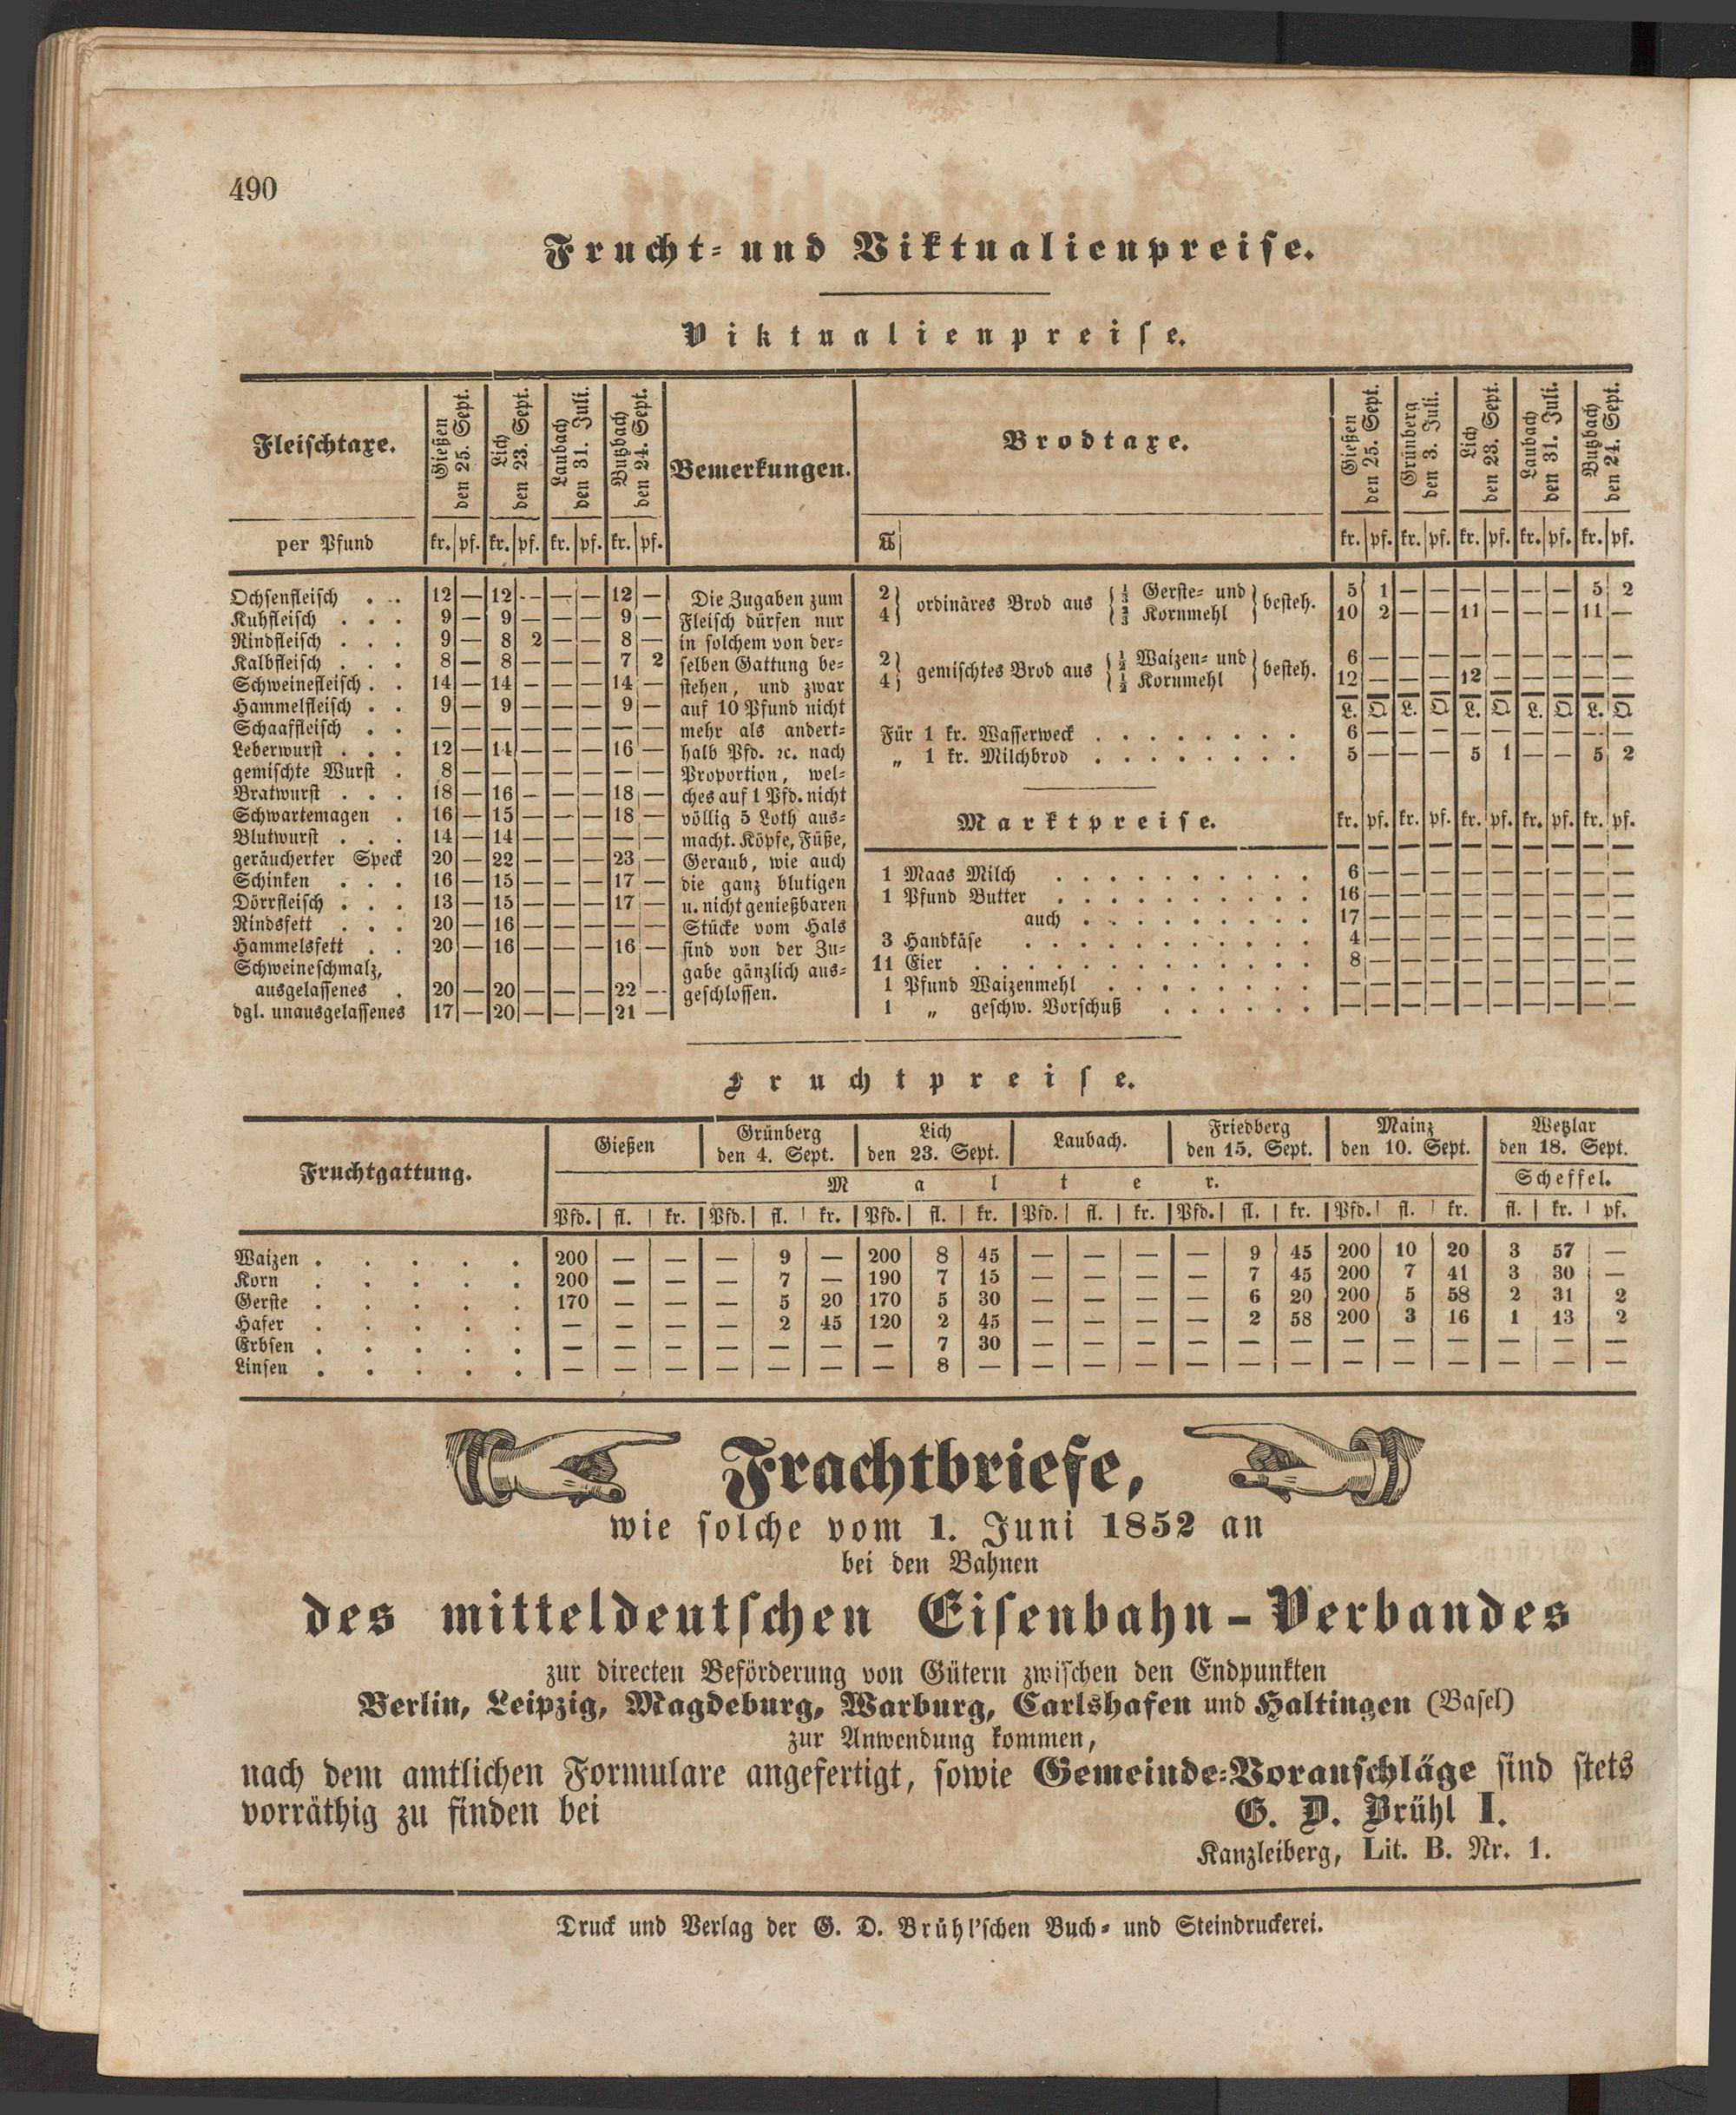 490
Frucht- und Viktualienpreise.
Viktualienpreise.
Fleischtaxe. | Gießen den 25. Sept. | Lich den 23. Sept. | Laubach den 31. Juli. | Butzbach den 24. Sept. | Bemerkungen.
per Pfund | kr. | pf. | kr. | pf. | kr. | pf. | kr. | pf.
Ochsenfleisch . . | 12 | — | 12 | — | — | — | 12 | —
Kuhfleisch . . . | 9 | — | 9 | — | — | — | 9 | —
Rindfleisch . . . | 9 | — | 8 | 2 | — | — | 8 | —
Kalbfleisch . . . | 8 | — | 8 | — | — | — | 7 | 2
Schweinefleisch . . | 14 | — | 14 | — | — | — | 14 | —
Hammelfleisch . . | 9 | — | 9 | — | — | — | 9 | —
Schaaffleisch . . | — | — | — | — | — | — | — | —
Leberwurst . . . | 12 | — | 14 | — | — | — | 16 | —
gemischte Wurst . | 8 | — | — | — | — | — | — | —
Bratwurst . . . | 18 | — | 16 | — | — | — | 18 | —
Schwartemagen . | 16 | — | 15 | — | — | — | 18 | —
Blutwurst . . . | 14 | — | 14 | — | — | — | — | —
geräucherter Speck | 20 | — | 22 | — | — | — | 23 | —
Schinken . . . | 16 | — | 15 | — | — | — | 17 | —
Dörrfleisch . . . | 13 | — | 15 | — | — | — | 17 | —
Rindsfett . . . | 20 | — | 16 | — | — | — | — | —
Hammelsfett . . | 20 | — | 16 | — | — | — | 16 | —
Schweineschmalz,
ausgelassenes . | 20 | — | 20 | — | — | — | 22 | —
dgl. unausgelassenes | 17 | — | 20 | — | — | — | 21 | —
Die Zugaben zum
Fleisch dürfen nur
in solchem von der-
selben Gattung be-
stehen, und zwar
auf 10 Pfund nicht
mehr als andert-
halb Pfd. ꝛc. nach
Proportion, wel-
ches auf 1 Pfd. nicht
völlig 5 Loth aus-
macht. Köpfe, Füße,
Geraub, wie auch
die ganz blutigen
u. nicht genießbaren
Stücke vom Hals
sind von der Zu-
gabe gänzlich aus-
geschlossen.
Brodtaxe. | Gießen den 25. Sept. | Grünberg den 3. Juli. | Lich den 23. Sept. | Laubach den 31. Juli. | Butzbach den 24. Sept.
℔ | kr. | pf. | kr. | pf. | kr. | pf. | kr. | pf. | kr. | pf.
2 } ordinäres Brod aus { ⅓ Gerste- und } besteh. | 5 | 1 | — | — | — | — | — | — | 5 | 2
4 } { ⅔ Kornmehl } | 10 | 2 | — | — | 11 | — | — | — | 11 | —
2 } gemischtes Brod aus { ½ Waizen- und } besteh. | 6 | — | — | — | — | — | — | — | — | —
4 } { ½ Kornmehl } | 12 | — | — | — | 12 | — | — | — | — | —
L. | Q | L. | Q | L. | Q | L. | Q | L. | Q
Für 1 kr. Wasserweck . . . . . . . . | 6 | — | — | — | — | — | — | — | — | —
„ 1 kr. Milchbrod . . . . . . . . | 5 | — | — | — | 5 | 1 | — | — | 5 | 2
Marktpreise. | kr. | pf. | kr. | pf. | kr. | pf. | kr. | pf. | kr. | pf.
1 Maas Milch . . . . . . . . . . | 6 | — | — | — | — | — | — | — | — | —
1 Pfund Butter . . . . . . . . . . | 16 | — | — | — | — | — | — | — | — | —
auch . . . . . . . . . | 17 | — | — | — | — | — | — | — | — | —
3 Handkäse . . . . . . . . . . . | 4 | — | — | — | — | — | — | — | — | —
11 Eier . . . . . . . . . . . . . | 8 | — | — | — | — | — | — | — | — | —
1 Pfund Waizenmehl . . . . . . . . | — | — | — | — | — | — | — | — | — | —
1 „ geschw. Vorschuß . . . . . . | — | — | — | — | — | — | — | — | — | —
Fruchtpreise.
Fruchtgattung. | Gießen | Grünberg den 4. Sept. | Lich den 23. Sept. | Laubach. | Friedberg den 15. Sept. | Mainz den 10. Sept. | Wetzlar den 18. Sept.
Malter. | Scheffel.
Pfd. | fl. | kr. | Pfd. | fl. | kr. | Pfd. | fl. | kr. | Pfd. | fl. | kr. | Pfd. | fl. | kr. | Pfd. | fl. | kr. | fl. | kr. | pf.
Waizen . . . . . | 200 | — | — | — | 9 | — | 200 | 8 | 45 | — | — | — | — | 9 | 45 | 200 | 10 | 20 | 3 | 57 | —
Korn . . . . . | 200 | — | — | — | 7 | — | 190 | 7 | 15 | — | — | — | — | 7 | 45 | 200 | 7 | 41 | 3 | 30 | —
Gerste . . . . . | 170 | — | — | — | 5 | 20 | 170 | 5 | 30 | — | — | — | — | 6 | 20 | 200 | 5 | 58 | 2 | 31 | 2
Hafer . . . . . | — | — | — | — | 2 | 45 | 120 | 2 | 45 | — | — | — | — | 2 | 58 | 200 | 3 | 16 | 1 | 13 | 2
Erbsen . . . . . | — | — | — | — | — | — | — | 7 | 30 | — | — | — | — | — | — | — | — | — | — | — | —
Linsen . . . . . | — | — | — | — | — | — | — | 8 | — | — | — | — | — | — | — | — | — | — | — | — | —
Frachtbriefe,
wie solche vom 1. Juni 1852 an
bei den Bahnen
des mitteldeutschen Eisenbahn-Verbandes
zur directen Beförderung von Gütern zwischen den Endpunkten
Berlin, Leipzig, Magdeburg, Warburg, Carlshafen und Haltingen (Basel)
zur Anwendung kommen,
nach dem amtlichen Formulare angefertigt, sowie Gemeinde-Voranschläge sind stets
vorräthig zu finden bei G. D. Brühl I.
Kanzleiberg, Lit. B. Nr. 1.
Druck und Verlag der G. D. Brühl'schen Buch- und Steindruckerei.